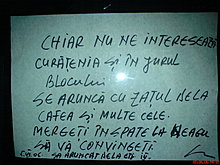 CHIAR NU NE INTERESEAZĂ
CURĂȚENIA ȘI ÎN JURUL
BLOCULUI
SE ARUNCĂ CU ZAȚUL DE LA
CAFEA ȘI MULTE CELE.
MERGEȚI ÎN SPATE LA NEAGU
SĂ VĂ CONVINGEȚI
SA ARUNCAT DE LA ETJ IV.